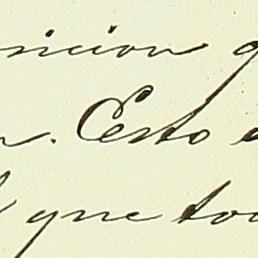 sicion
. Esto
que to